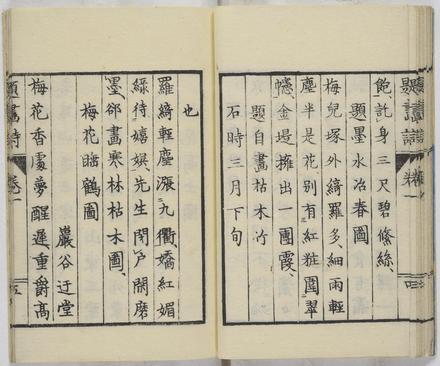 題畫詩 卷一 四
飽、託身三尺碧絛絲、
題墨水冶春圖
梅兒塚外綺羅多、細雨輕
塵半是花、別有紅粧圍翠
幰、金堤擁出一團霞、
題自畫枯木竹
石時三月下旬
也
羅綺輕塵漲九衢、嬌紅媚
綠待嬉娯、先生閉戶閒磨
墨、郤畫寒林枯木圖、
梅花睡鶴圖
巖谷迂堂
梅花香處夢醒遲、重爵高
題畫詩 卷一 五